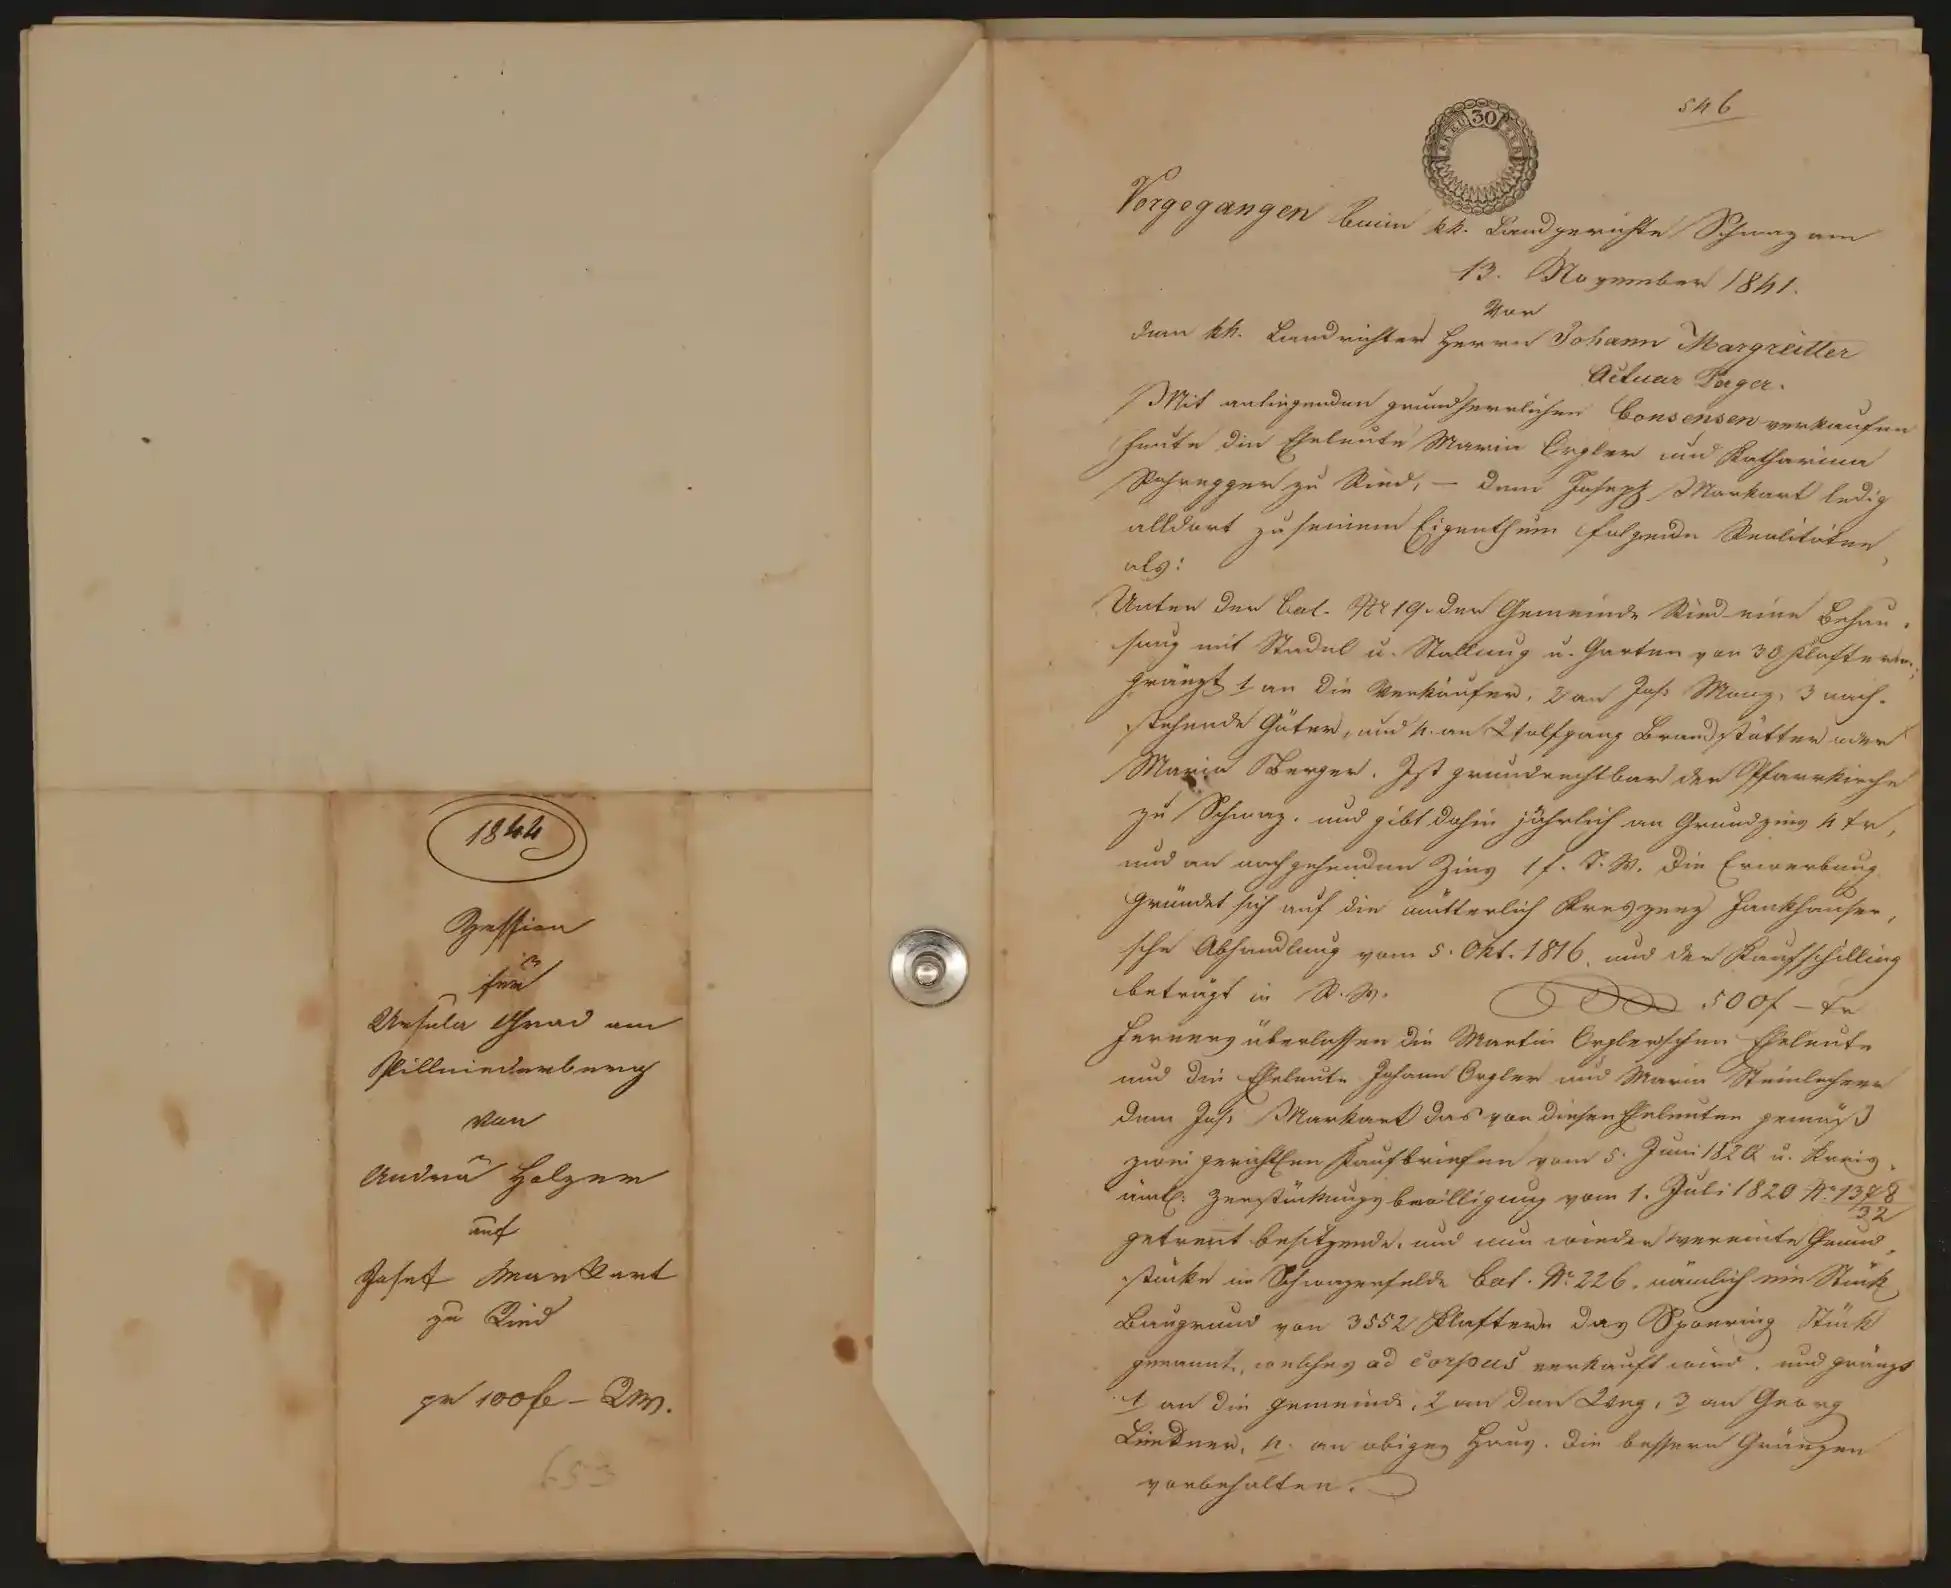 1844
Zession
für
Ursula Grad am
Pillniederberg
von
Andrä Holzer
auf
Josef Markart
zu Ried
pr 100 fl – RW.
653
546
30
Vorgegangen beim kk. Landgerichte Schwaz am
13. November 1841.
Vor
dem kk. Landrichter Herrn Johann Margreitter
Actuar Jäger.
Mit anliegenden grundherrlichen Consensen verkaufen
heute die Eheleute Martin Orgler und Katharina
zu Ried, – dem Joseph Markart ledig
alldort zu seinem Eigenthum folgende Realitäten,
als:
Unter der Cat. Nr 19. der Gemeinde Ried eine Behau-
sung mit Stadel u. Stallung u. Garten von 30 Klaftern;
gränzt 1 an die Verkäufer, 2 an Jos: Manz, 3 nach-
stehende Güter, und 4. an Wolfgang Brandstätter oder
Maria Berger. Ist grundrechtbar der Pfarrkirche
zu Schwaz. und gibt dahin jährlich an Grundzins 4 kr,
und an nachgehenden Zins 1 f. T. W. Die Erwerbung
gründet sich auf die mütterlich Kreszenz Hankhauser-
sche Abhandlung vom 5. Okt. 1816. und der Kaufschilling
beträgt in R. W. 500 f – kr
Ferners überlassen die Martin Orgler'schen Eheleute
und die Eheleute Johann Orgler und Maria Steinlechner
dem Jos: Markart das von diesen Eheleuten gemäß
zwei gerichtlen Kaufbriefen vom 5. Juni 1820 u. Kreis-
ämtl: Zerstückungsbewilligung vom 1. Juli 1820 No 1378/32
getrent besitzende, und nun wieder vereinte Grund-
stücke im Schwazerfelde Cat. No 226. nämlich ein Stück
Baugrund von 3552 Klaftern das Sponring Stück
genannt, welches ad corpus verkauft wird. und gränzt
1 an die Gemeinde, 2 an den Weg, 3 an Georg
Lindner, 4. an obiges Haus. Die bessern Gränzen
vorbehalten.